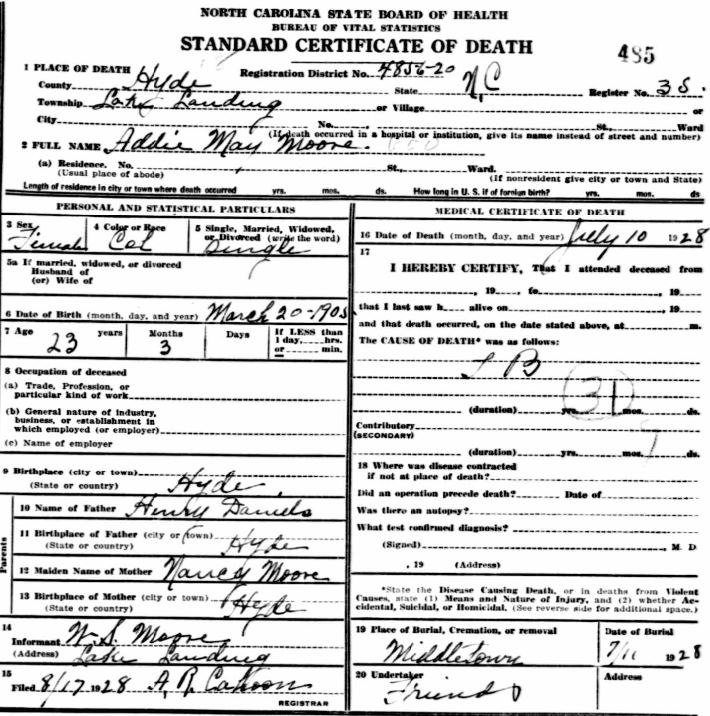 NORTH CAROLINA STATE BOARD OF HEALTH
BUREAU OF VITAL STATISTICS
STANDARD CERTIFICATE OF DEATH
485
1 PLACE OF DEATH
Registration District No. 4856-20
Register No. 38.
County Hyde State N.C.
Township Lake Landing or Village or
City No. St., Ward
(If death occurred in a hospital or institution, give its name instead of street and number)
2 FULL NAME Addie May Moore.
(a) Residence. No. St., Ward.
(Usual place of abode) (If nonresident give city or town and State)
Length of residence in city or town where death occurred yrs. mos. ds. How long in U.S. if of foreign birth? yrs. mos. ds.
PERSONAL AND STATISTICAL PARTICULARS
3 Sex Female
4 Color or Race Col
5 Single, Married, Widowed, or Divorced (write the word) Single
5a If married, widowed, or divorced
Husband of
(or) Wife of
6 Date of Birth (month, day, and year) March 20-1905
7 Age 23 years
Months 3
Days
If LESS than
1 day, hrs.
or min.
8 Occupation of deceased
(a) Trade, Profession, or
particular kind of work
(b) General nature of industry,
business, or establishment in
which employed (or employer)
(c) Name of employer
9 Birthplace (city or town)
(State or country) Hyde
Parents
10 Name of Father Henry Daniels
11 Birthplace of Father (city or town)
(State or country) Hyde
12 Maiden Name of Mother Nancy Moore
13 Birthplace of Mother (city or town)
(State or country) Hyde
14
Informant W.S. Moore
(Address) Lake Landing
15
Filed 8/17 1928 A. R. Cahoon
REGISTRAR
MEDICAL CERTIFICATE OF DEATH
16 Date of Death (month, day, and year) July 10 1928
17
I HEREBY CERTIFY, That I attended deceased from
, 19 , to , 19
that I last saw h alive on , 19
and that death occurred, on the date stated above, at m.
The CAUSE OF DEATH* was as follows:
T B
31
(duration) yrs. mos. ds.
Contributory
(SECONDARY)
7
(duration) yrs. mos. ds.
18 Where was disease contracted
if not at place of death?
Did an operation precede death? Date of
Was there an autopsy?
What test confirmed diagnosis?
(Signed) M. D
, 19 (Address)
*State the Disease Causing Death, or in deaths from Violent
Causes, state (1) Means and Nature of Injury, and (2) whether Ac-
cidental, Suicidal, or Homicidal. (See reverse side for additional space.)
19 Place of Burial, Cremation, or removal
Middletown
Date of Burial
7/11 1928
20 Undertaker
Friends
Address